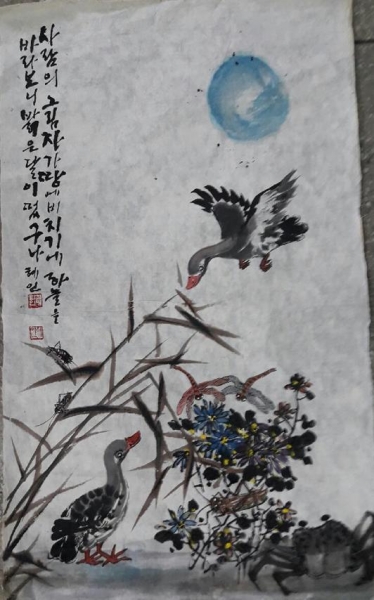 사람의 그림자가 땅에 비치기에 하늘을
바라보니 밝은 달이 떴구나 레인